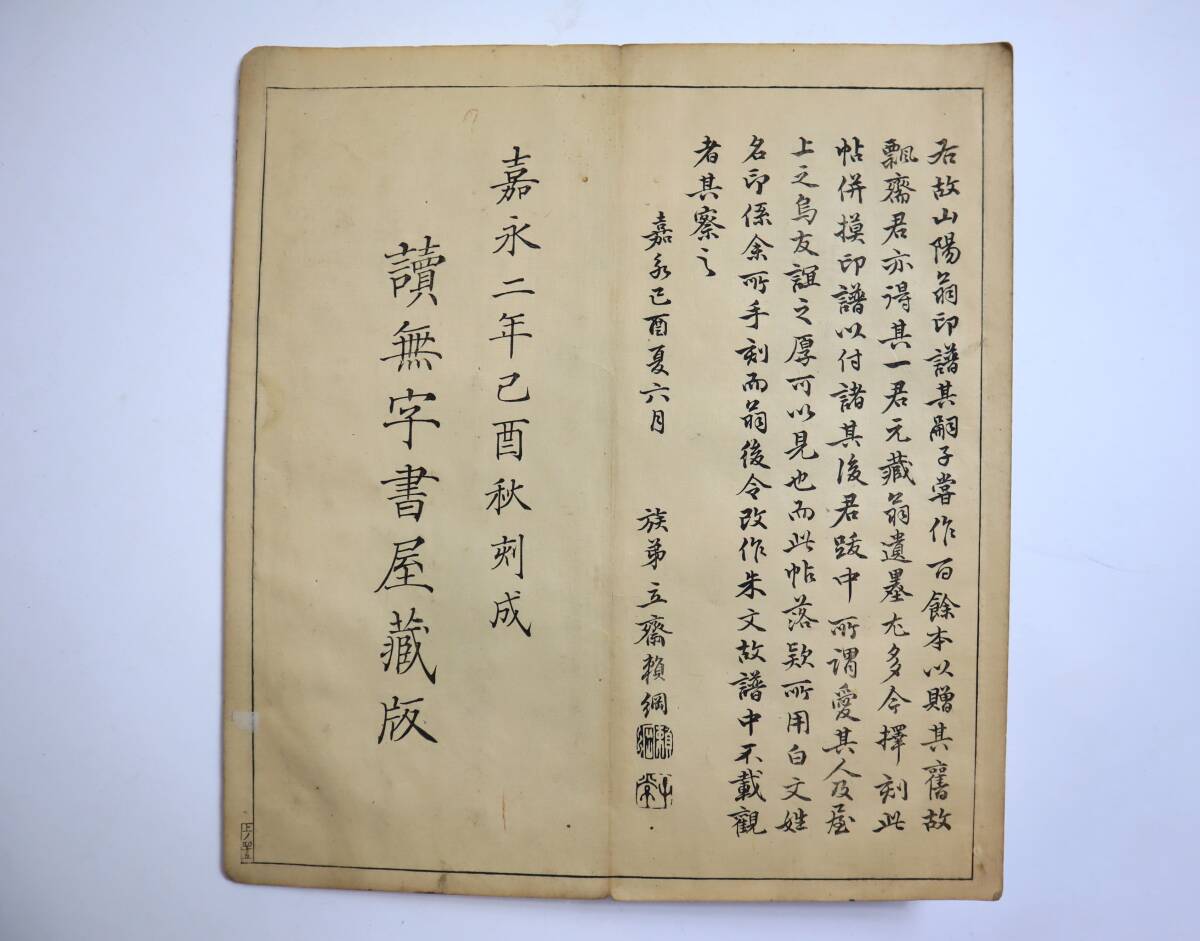 右故山陽翁印譜其嗣子嘗作百餘本以贈其舊故
飄齋君亦得其一君元藏翁遺墨尤多今擇刻此
帖併摸印譜以付諸其後君跋中所謂愛其人及屋
上之烏友誼之厚可以見也而此帖落款所用白文姓
名印係余所手刻而翁後令改作朱文故譜中不載觀
者其察之
嘉永己酉夏六月 族弟立齋賴綱
嘉永二年己酉秋刻成
讀無字書屋藏版